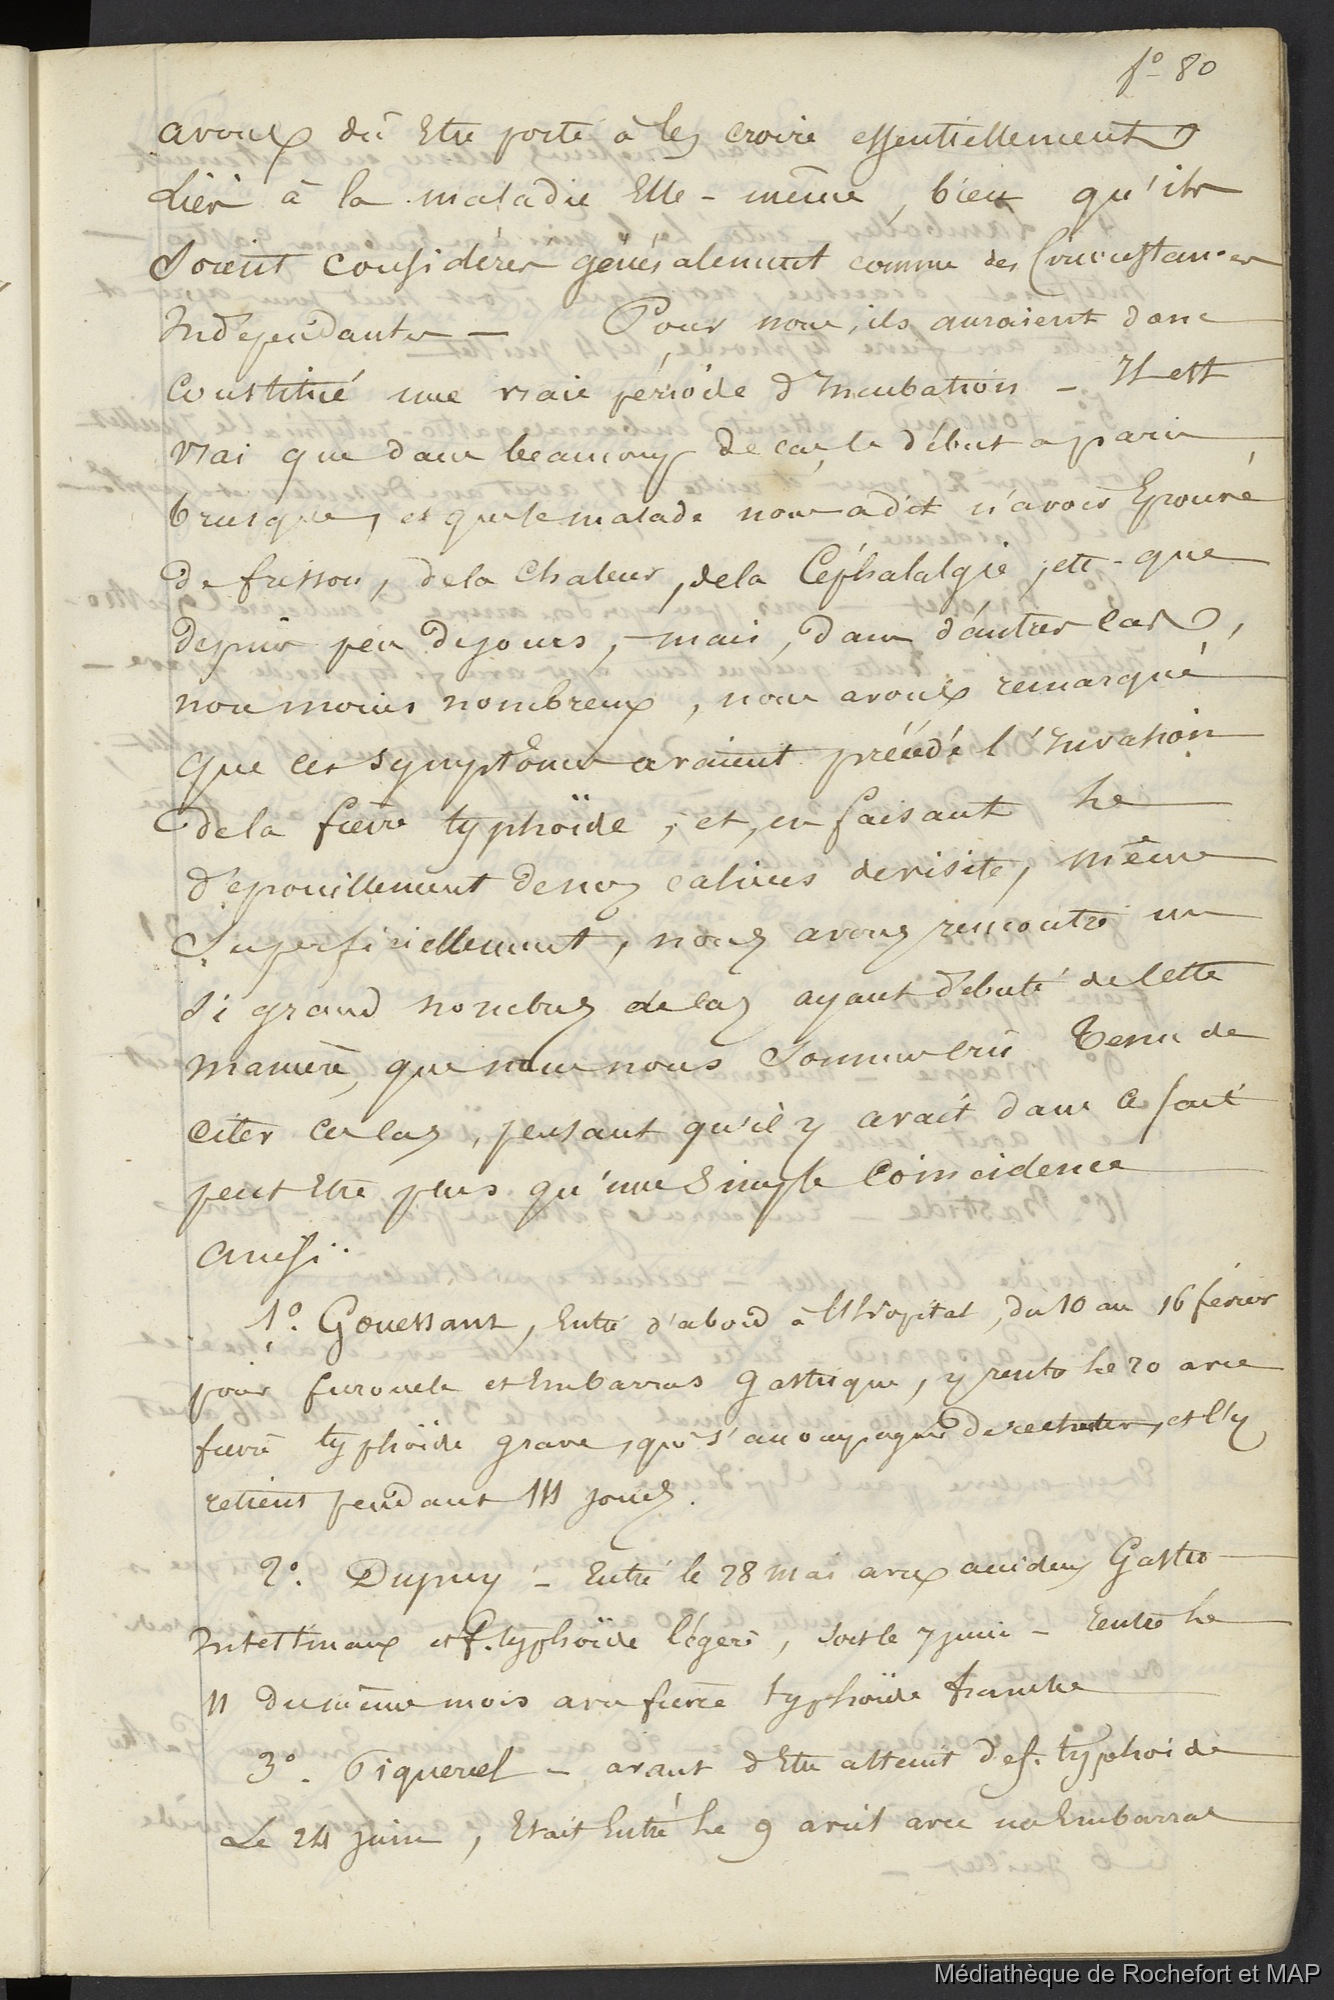 fo 80
avons dû Etre porté à les croire essentiellement
Liés à la maladie Elle-même, bien qu'ils
Soient considérés généralement comme des Circonstances
Indépendantes — Pour nous, ils auraient donc
Constitué une vraie période d'Incubation — Il est
vrai que dans beaucoup de cas le début a paru
brusque, et que le malade nous a dit n'avoir Eprouvé
de frisson, de la chaleur, de la Céphalalgie, etc - que
depuis peu de jours, — mais, dans d'autres cas,
non moins nombreux, nous avons remarqué
que ces symptômes avaient précédé l'Invasion
de la fièvre typhoïde, et, en faisant le
dépouillement de nos cahiers de visite, même
Superficiellement, nous avons rencontré un
Si grand nombre de cas ayant débuté de Cette
manière, que nous nous Sommes crû Tenu de
citer ces cas, pensant qu'il y avait dans ce fait
peut Etre plus qu'une Simple Coïncidence
Ainsi..
1o. Gouessant, Entré d'abord à l'hôpital, du 10 au 16 février
pour furoncle et Embarras gastrique, y rentre le 20 avec
fièvre typhoïde grave, qui s'accompagne de rechutes, et l'y
retient pendant 111 jours.
2o. Dupuy — Entré le 28 mai avec accidens Gastro
Intestinaux et f. typhoïde légère, sort le 7 juin — Rentre le
11 du même mois avec fièvre typhoïde franche
3o. Piquerel — avant d'Etre atteint de f. typhoïde
Le 24 juin, Etait Entré le 9 avril avec un Embarras
Médiathèque de Rochefort et MAP